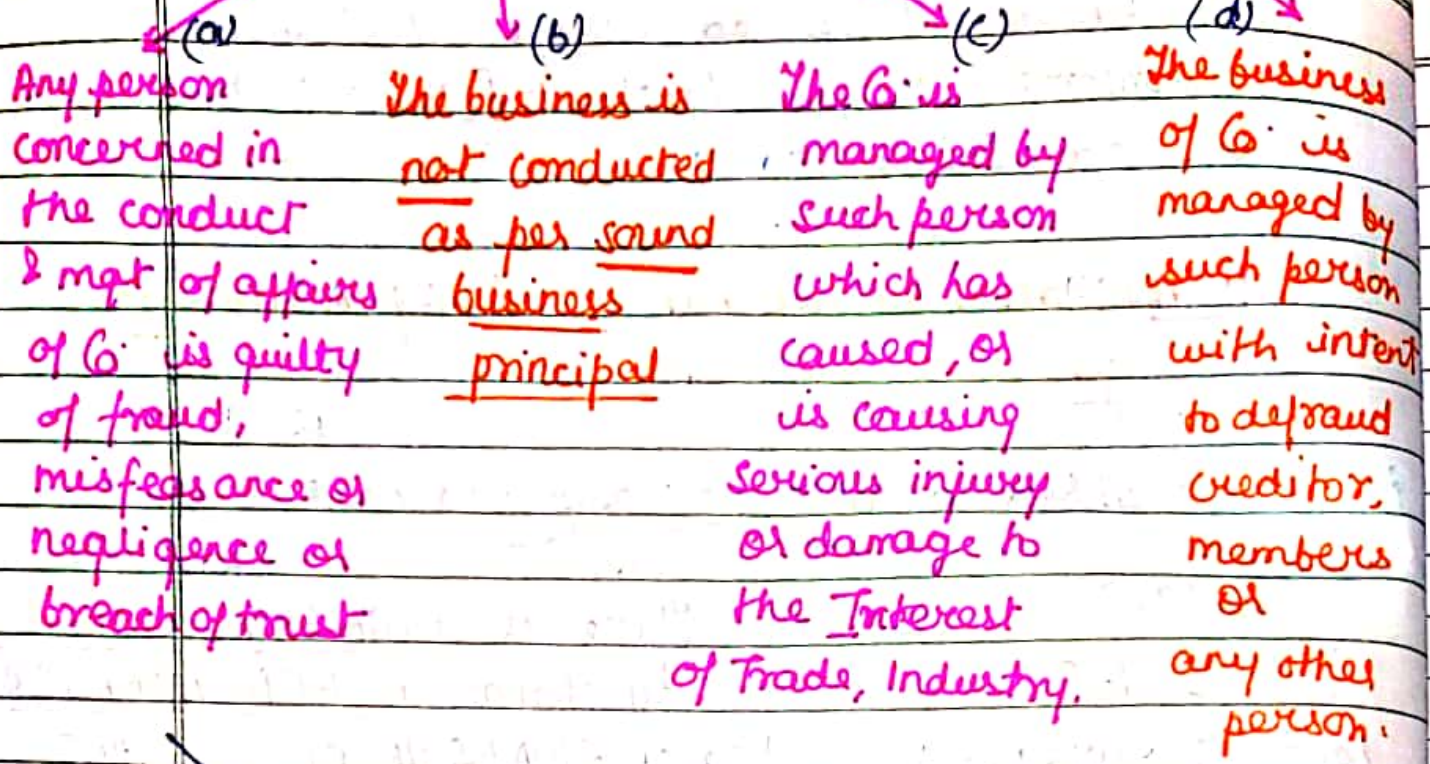 (a)
Any person
concerned in
the conduct
& mgt of affairs
of Co. is guilty
of fraud,
misfeasance or
negligence or
breach of trust
(b)
The business is
not conducted
as per sound
business
principal
(c)
The Co. is
managed by
such person
which has
caused, or
is causing
serious injury
or damage to
the Interest
of Trade, Industry.
(d)
The business
of Co. is
managed by
such person
with intent
to defraud
creditor,
members
or
any other
person.